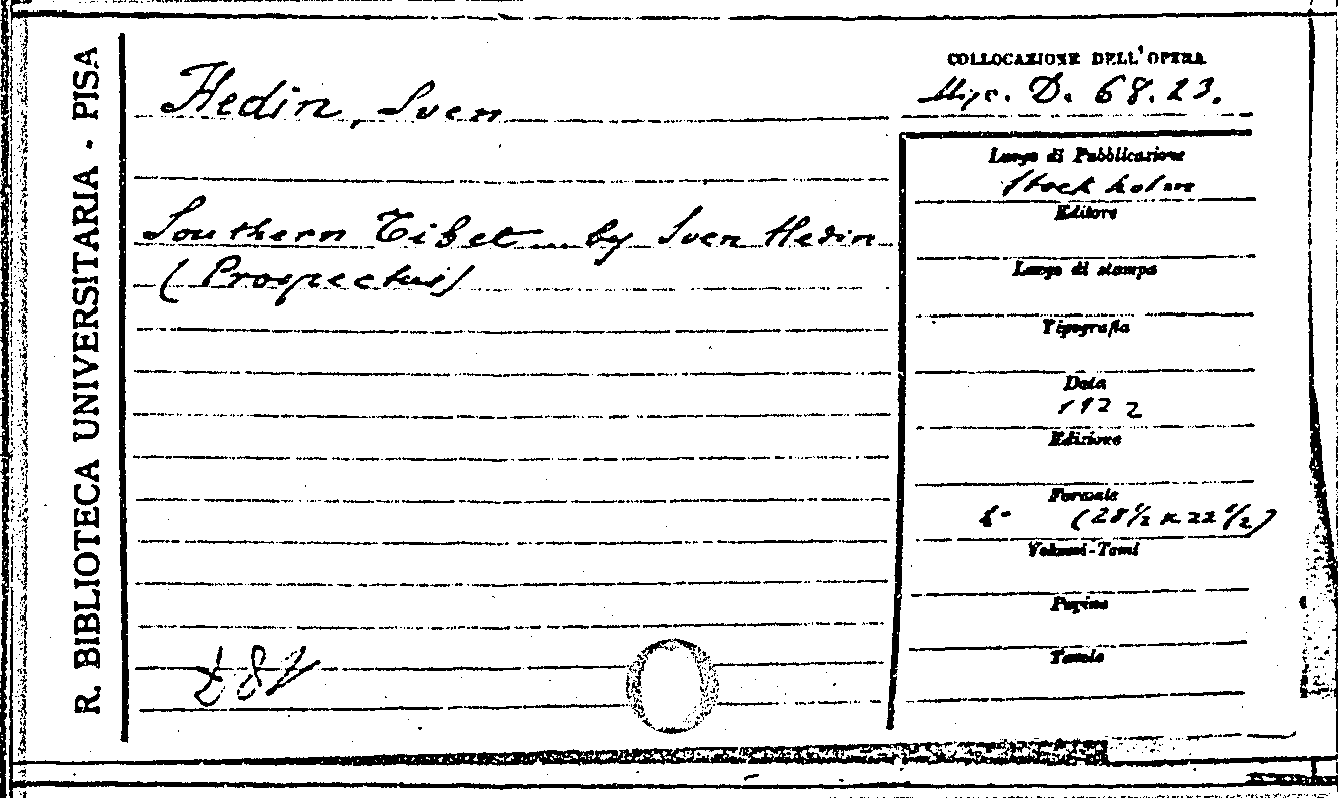 R. BIBLIOTECA UNIVERSITARIA - PISA
Hedin, Sven
Southern Tibet ... by Sven Hedin
(Prospectus)
COLLOCAZIONE DELL'OPERA
Misc. D. 68.23.
Luogo di Pubblicazione
Stockholm
Editore
Luogo di stampa
Tipografia
Data
1922
Edizione
Formato
(28 1/2 x 22 1/2)
Volumi-Tomi
Pagine
Tavole